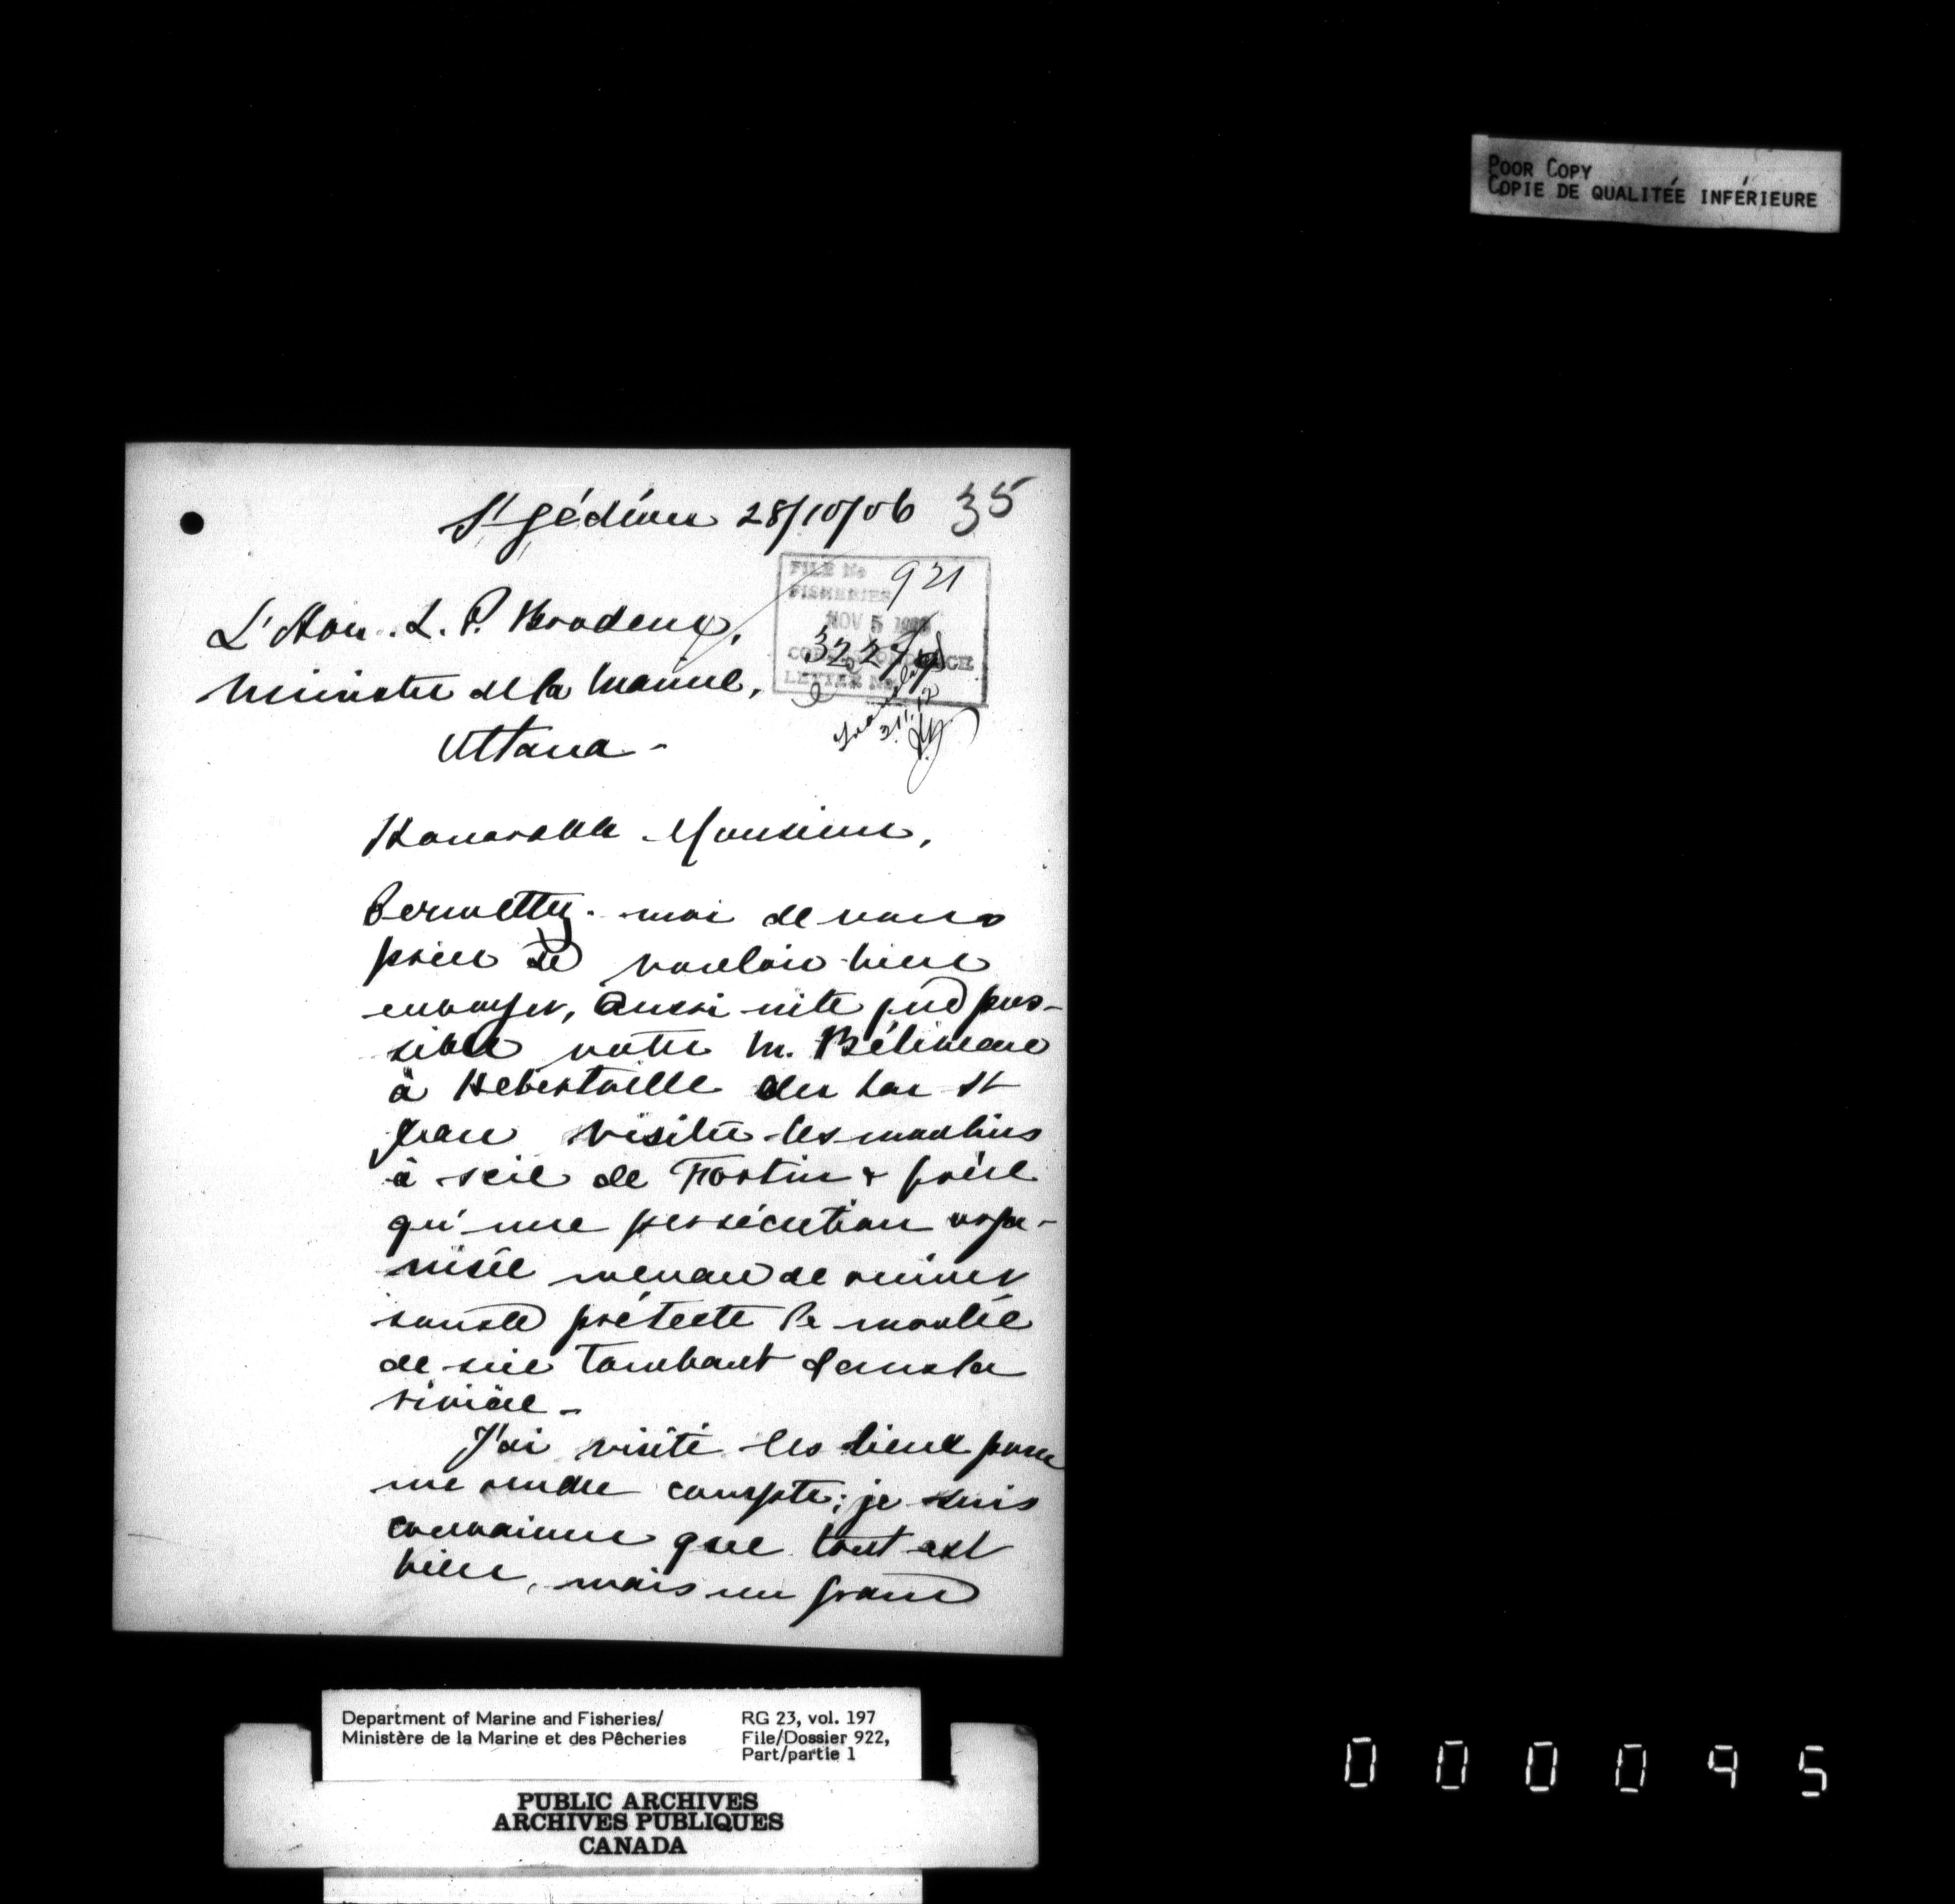 POOR COPY
COPIE DE QUALITÉE INFÉRIEURE
St Gédéon 28/10/06 35
FILE No 921
FISHERIES
NOV 5
CORRESPONDENCE
LETTER No.
L'Hon. L. P. Brodeur,
Ministre de la Marine,
Ottawa -
Honorable Monsieur,
Permettez-moi de vous
prier de vouloir bien
envoyer, aussi vite que pos-
sible votre M. Béliveau
à Hébertville du Lac St
Jean visiter les moulins
à scie de Fortin & frère
qu'une persécution orga-
nisée menace de ruiner
sous le prétexte la moulée
de scie tombant dans la
rivière -
J'ai visité les lieux pour
me rendre compte; je suis
convaincu que tout est
bien, mais un grand
Department of Marine and Fisheries/
Ministère de la Marine et des Pêcheries
RG 23, vol. 197
File/Dossier 922,
Part/partie 1
PUBLIC ARCHIVES
ARCHIVES PUBLIQUES
CANADA
000095